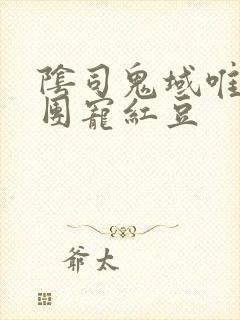 陰司鬼域唯
團寵紅豆
爺太